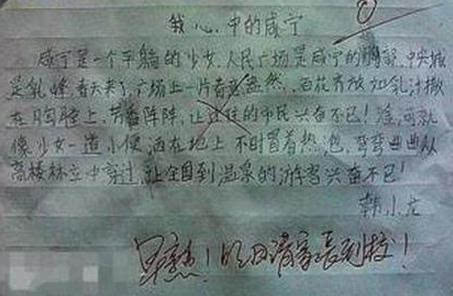 我心中的咸宁
咸宁是一个平躺的少女,人民广场是咸宁的胸部,中央城
是乳峰,春天来了,广场上一片春意盎然,百花齐放如乳汁撒
在胸膛上,芳香阵阵,让过往的市民兴奋不已!淦河就
像少女一道小便洒在地上不时冒着热泡,弯弯曲曲从
高楼林立中穿过,让全国到温泉的游客兴奋不已!
韩小龙
早熟!明日请家长到校!